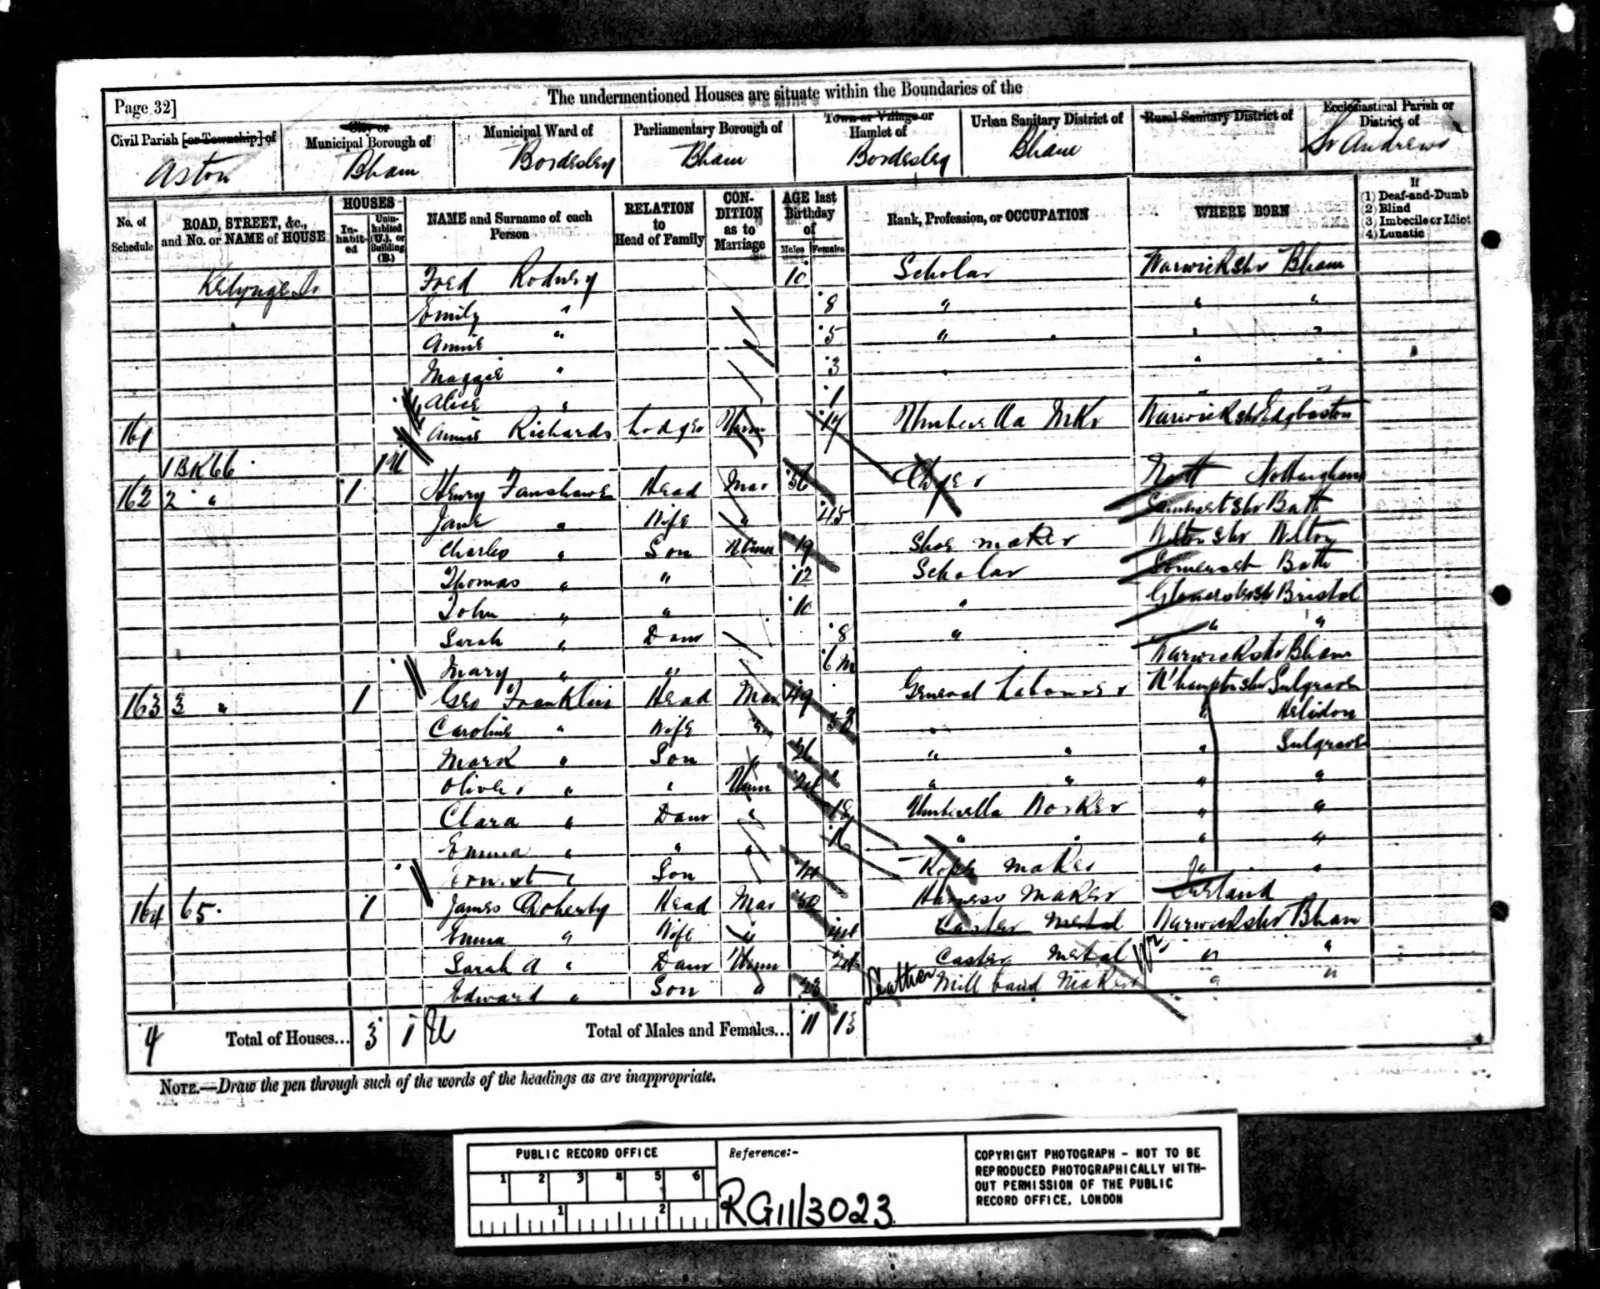 The undermentioned Houses are situate within the Boundaries of the
Page 32]
Civil Parish [or Township] of Aston
City or Municipal Borough of Bham
Municipal Ward of Bordesley
Parliamentary Borough of Bham
Town or Village or Hamlet of Bordesley
Urban Sanitary District of Bham
Rural Sanitary District of
Ecclesiastical Parish or District of St Andrews
No. of Schedule
ROAD, STREET, &c., and No. or NAME of HOUSE
HOUSES
In-habit-ed
Unin-habited (U.), or Building (B.)
NAME and Surname of each Person
RELATION to Head of Family
CON-DITION as to Marriage
AGE last Birthday of
Males Females
Rank, Profession, or OCCUPATION
WHERE BORN
If
(1) Deaf-and-Dumb
(2) Blind
(3) Imbecile or Idiot
(4) Lunatic
Fred Rodney 10 Scholar Warwicksh Bham
Emily " 8 " " "
Annie " 5 " " "
Maggie " 3 " "
Alice " 1
161 Annie Richards Lodger Unm 17 Umbrella Mkr Warwicksh Edgbaston
1 BK 66 1 U
162 2 " 1 Henry Fanshawe Head Mar 36 Nott Nottingham
Jane " Wife " 45 Somersetshr Bath
Charles " Son Unm 19 Shoe maker
Thomas " " 12 Scholar Somerset Bath
John " " 10 " Bristol
Sarah " Daur 8 " " "
Mary " " 6 m Warwickshr Bham
163 3 " 1 Geo Franklin Head Mar 49 General Labourer N'hamptonshr Sulgrave
Caroline " Wife " " Helidon
Mark " Son " " " " Sulgrave
Oliver " " Unm " " " "
Clara " Daur " 18 Umbrella Worker " "
Emma " " " 16 " " " "
Ernest " Son 14 maker " "
164 65 1 James Doherty Head Mar Harness Maker Ireland
Emma " Wife " Caster Metal Warwickshr Bham
Sarah A " Daur Unm Caster Metal " "
Edward " Son " 23 Leather Mill band Maker " "
4 Total of Houses... 3 1 U Total of Males and Females... 11 13
NOTE.—Draw the pen through such of the words of the headings as are inappropriate.
PUBLIC RECORD OFFICE
1 2 3 4 5 6
1 2
Reference:-
RG11/3023
COPYRIGHT PHOTOGRAPH - NOT TO BE
REPRODUCED PHOTOGRAPHICALLY WITH-
OUT PERMISSION OF THE PUBLIC
RECORD OFFICE, LONDON